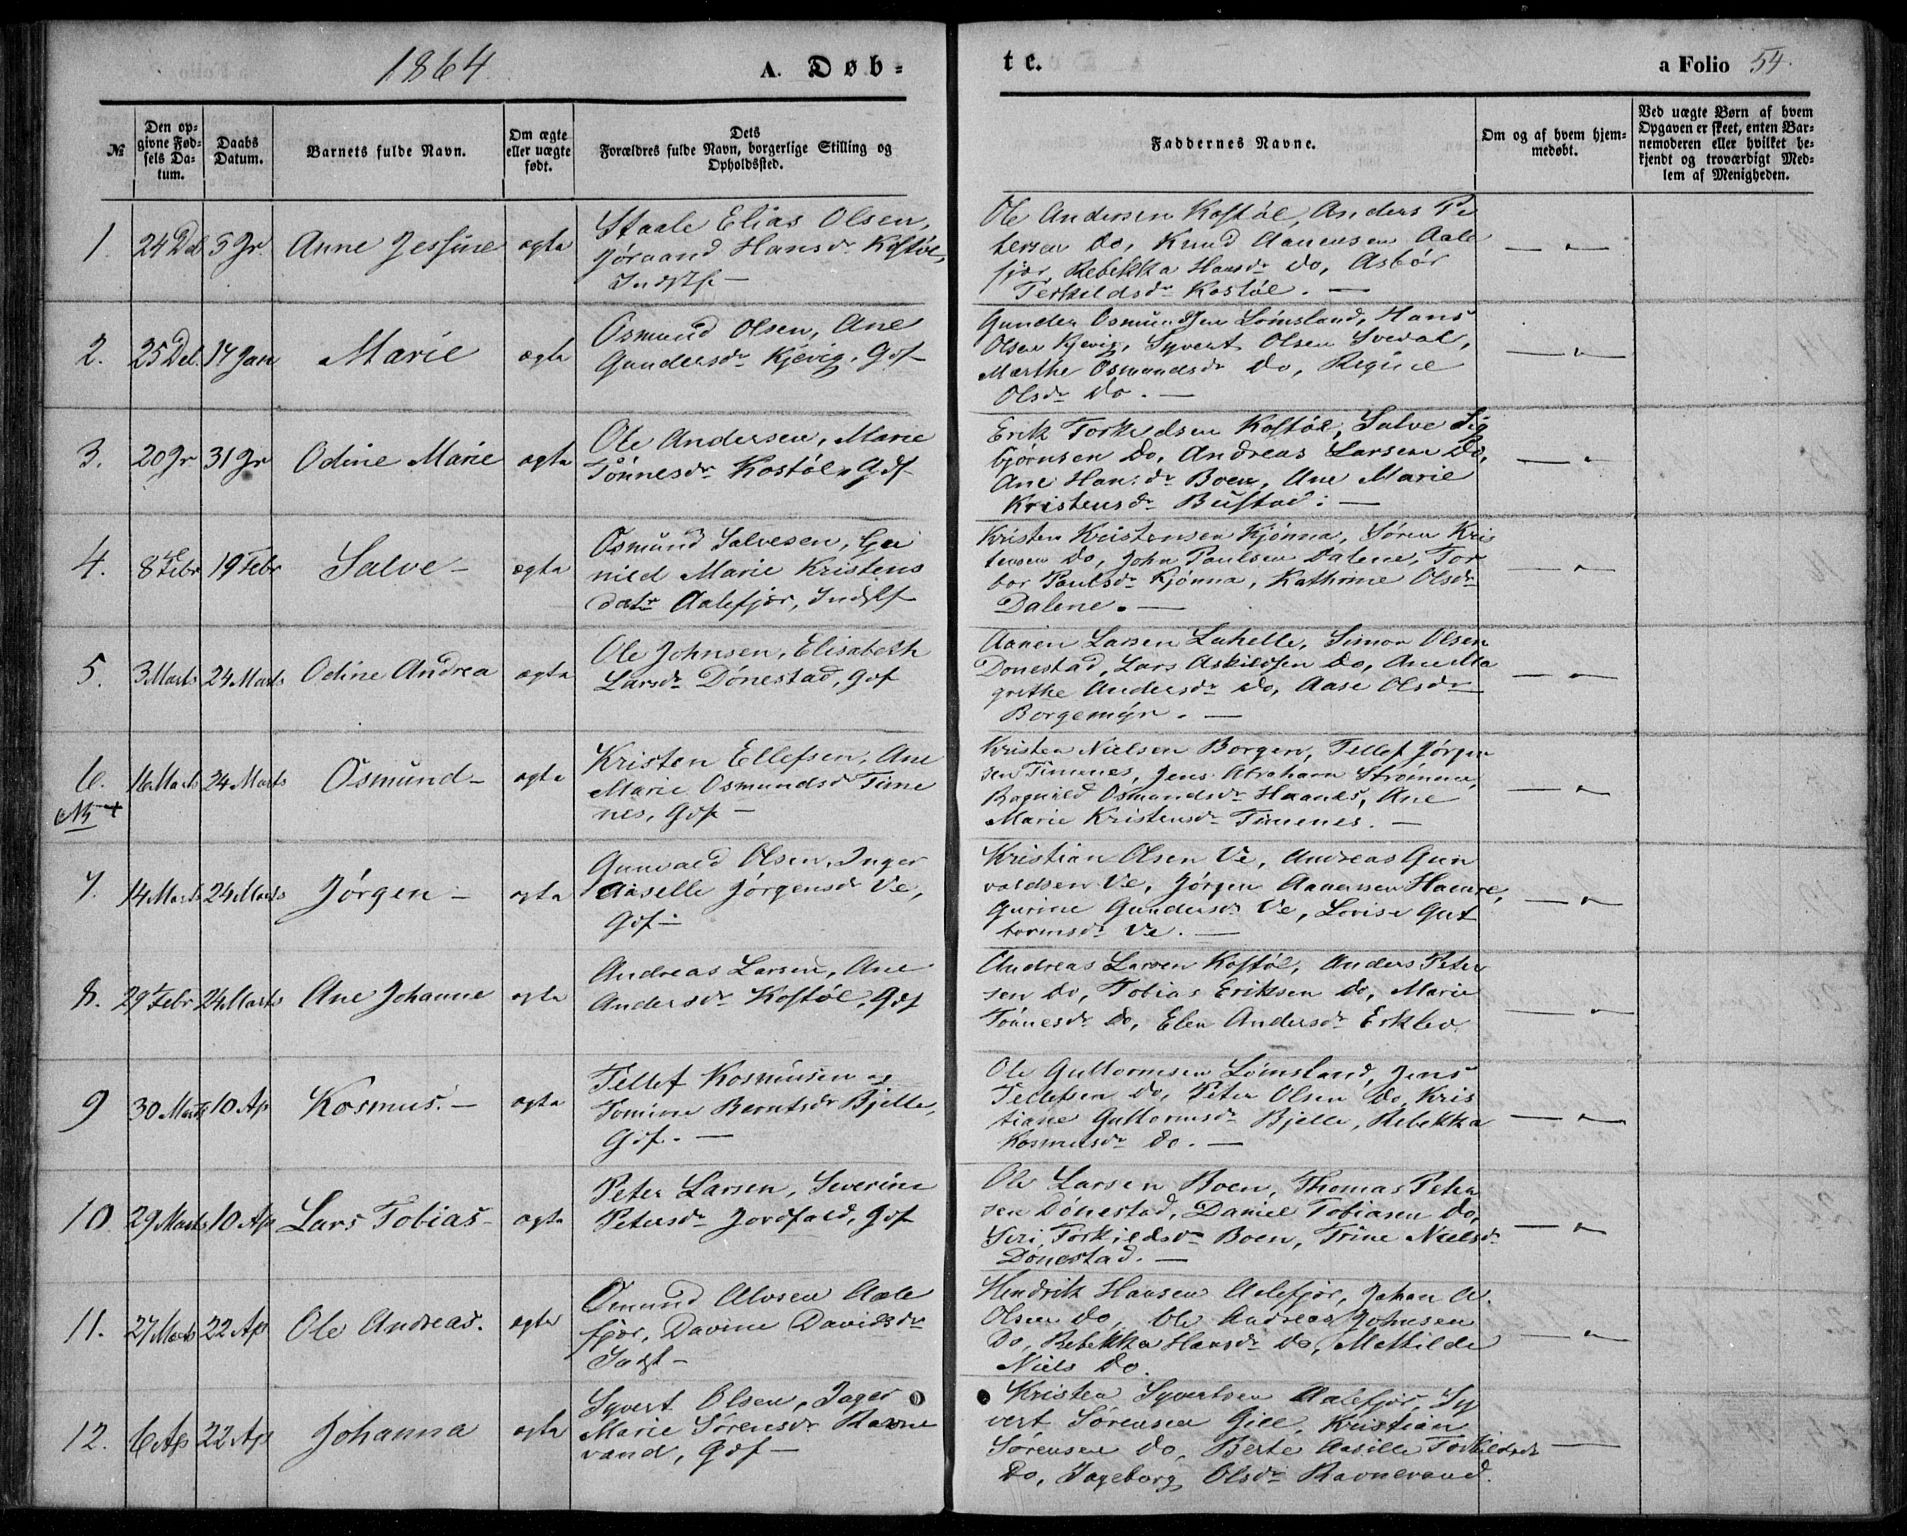 1864.
A. Døb-
te.
a Folio 54.
№
Den op-
givne Fød-
sels Da-
tum.
Daabs
Datum.
Barnets fulde Navn.
Om ægte
eller uægte
født.
Dets
Forældres fulde Navn, borgerlige Stilling og
Opholdssted.
Faddernes Navne.
Om og af hvem hjem-
medøbt.
Ved uægte Børn af hvem
Opgaven er skeet, enten Bar-
nemoderen eller hvilket be-
kjendt og troværdigt Med-
lem af Menigheden.
1. 24 Dec 5 Jr. Anne Jessine ægte
Staale Elias Olsen,
Jøraand Hansdr Kostøl,
Indstf —
Ole Andersen Kostøl, Anders Pe
tersen do, Knud Aanensen Aale
fjær, Rebekka Hansdr do, Asbør
Terkildsdr Kostøl. —
2. 25 Dec. 17 Jan Marie ægte
Osmund Olsen, Ane
Gundersdr Kjevig, Gdf
Gunder Osmundsen Lømsland, Hans
Olsen Kjevig, Syvert Olsen Svedal,
Marthe Osmundsdr do, Regine
Olsdr do. —
3. 20 Jr 31 Jr Odine Marie ægte
Ole Andersen, Marie
Tønnesdr Kostøl, Gdf
Erik Torkildsen Kostøl, Salve Sig
bjørnsen do, Andreas Larsen do,
Ane Hansdr Boen, Ane Marie
Kristensdr Bustad. —
4. 8 Febr 19 Febr Salve — ægte
Osmund Salvesen, Gu
nild Marie Kristens
datr Aalefjær, Indstf
Kristen Kristensen Kjønna, Søren Kris
tensen do, John Paulsen Dalene, Tor
bor Paulsdr Kjønna, Kathrine Olsdr
Dalene. —
5. 3 Marts 24 Marts Odine Andrea ægte
Ole Johnsen, Elisabeth
Larsdr Dønestad, Gdf
Aanen Larsen Lahelle, Simon Olsen
Dønestad, Lars Askildsen do, Ane Ma
grethe Andersdr do, Aase Olsdr
Borgemyr. —
6. 16 Marts 24 Marts Osmund — ægte
Kristen Ellefsen, Ane
Marie Osmundsdr Time
nes, Gdf —
Kristen Nielsen Borgen, Tellef Jørgen
sen Timenes, Jens Abraham Strømme,
Ragnild Osmundsdr Haanes, Ane
Marie Kristensdr Timenes. —
7. 14 Marts 24 Marts Jørgen — ægte
Gunvald Olsen, Inger
Aaselle Jørgensdr Ve,
Gdf —
Kristian Olsen Ve, Andreas Gun
valdsen Ve, Jørgen Aanensen Hamre,
Gurine Gundersdr Ve, Lovise Gut
tormsdr Ve. —
8. 29 Febr 24 Marts Ane Johanne ægte
Andreas Larsen, Ane
Andersdr Kostøl, Gdf
Andreas Larsen Kostøl, Anders Peter
sen do, Tobias Eriksen do, Marie
Tønnesdr do, Elen Andersdr Erklev.
9 30 Marts 10 Ap Rosmus. — ægte
Tellef Rosmusen og
Tomine Berntsdr Bjelle,
Gdf. —
Ole Guttormsen Lømsland, Jens
Tellefsen do, Peter Olsen do, Kris
tiane Guttormsdr Bjelle, Rebekka
Rosmusdr do. —
10. 29 Marts 10 Ap Lars Tobias — ægte
Peter Larsen, Severine
Petersdr Jordfald, Gdf
Ole Larsen Boen, Thomas Peter
sen Dønestad, Daniel Tobiasen do,
Siri Torkildsdr Boen, Trine Nielsdr
Dønestad. —
11. 27 Marts 22 Ap Ole Andreas. ægte
Osmund Alvsen Aale
fjær, Davine Davidsdr
Indst —
Hendrik Hansen Aalefjær, Johan A.
Olsen do, Ole Andreas Johnsen
do, Rebekka Hansdr do, Mathilde
Niels do.
12. 6 Ap 22 Ap Johanna ægte
Syvert Olsen, Inger
Marie Sørensdr Ravne
vand, Gdf —
Kristen Syvertsen Aalefjær, Sy
vert Sørensen Gill, Kristian
Sørensen do, Berte Aasille Torkildsdr
do, Ingeborg Olsdr Ravnevand.